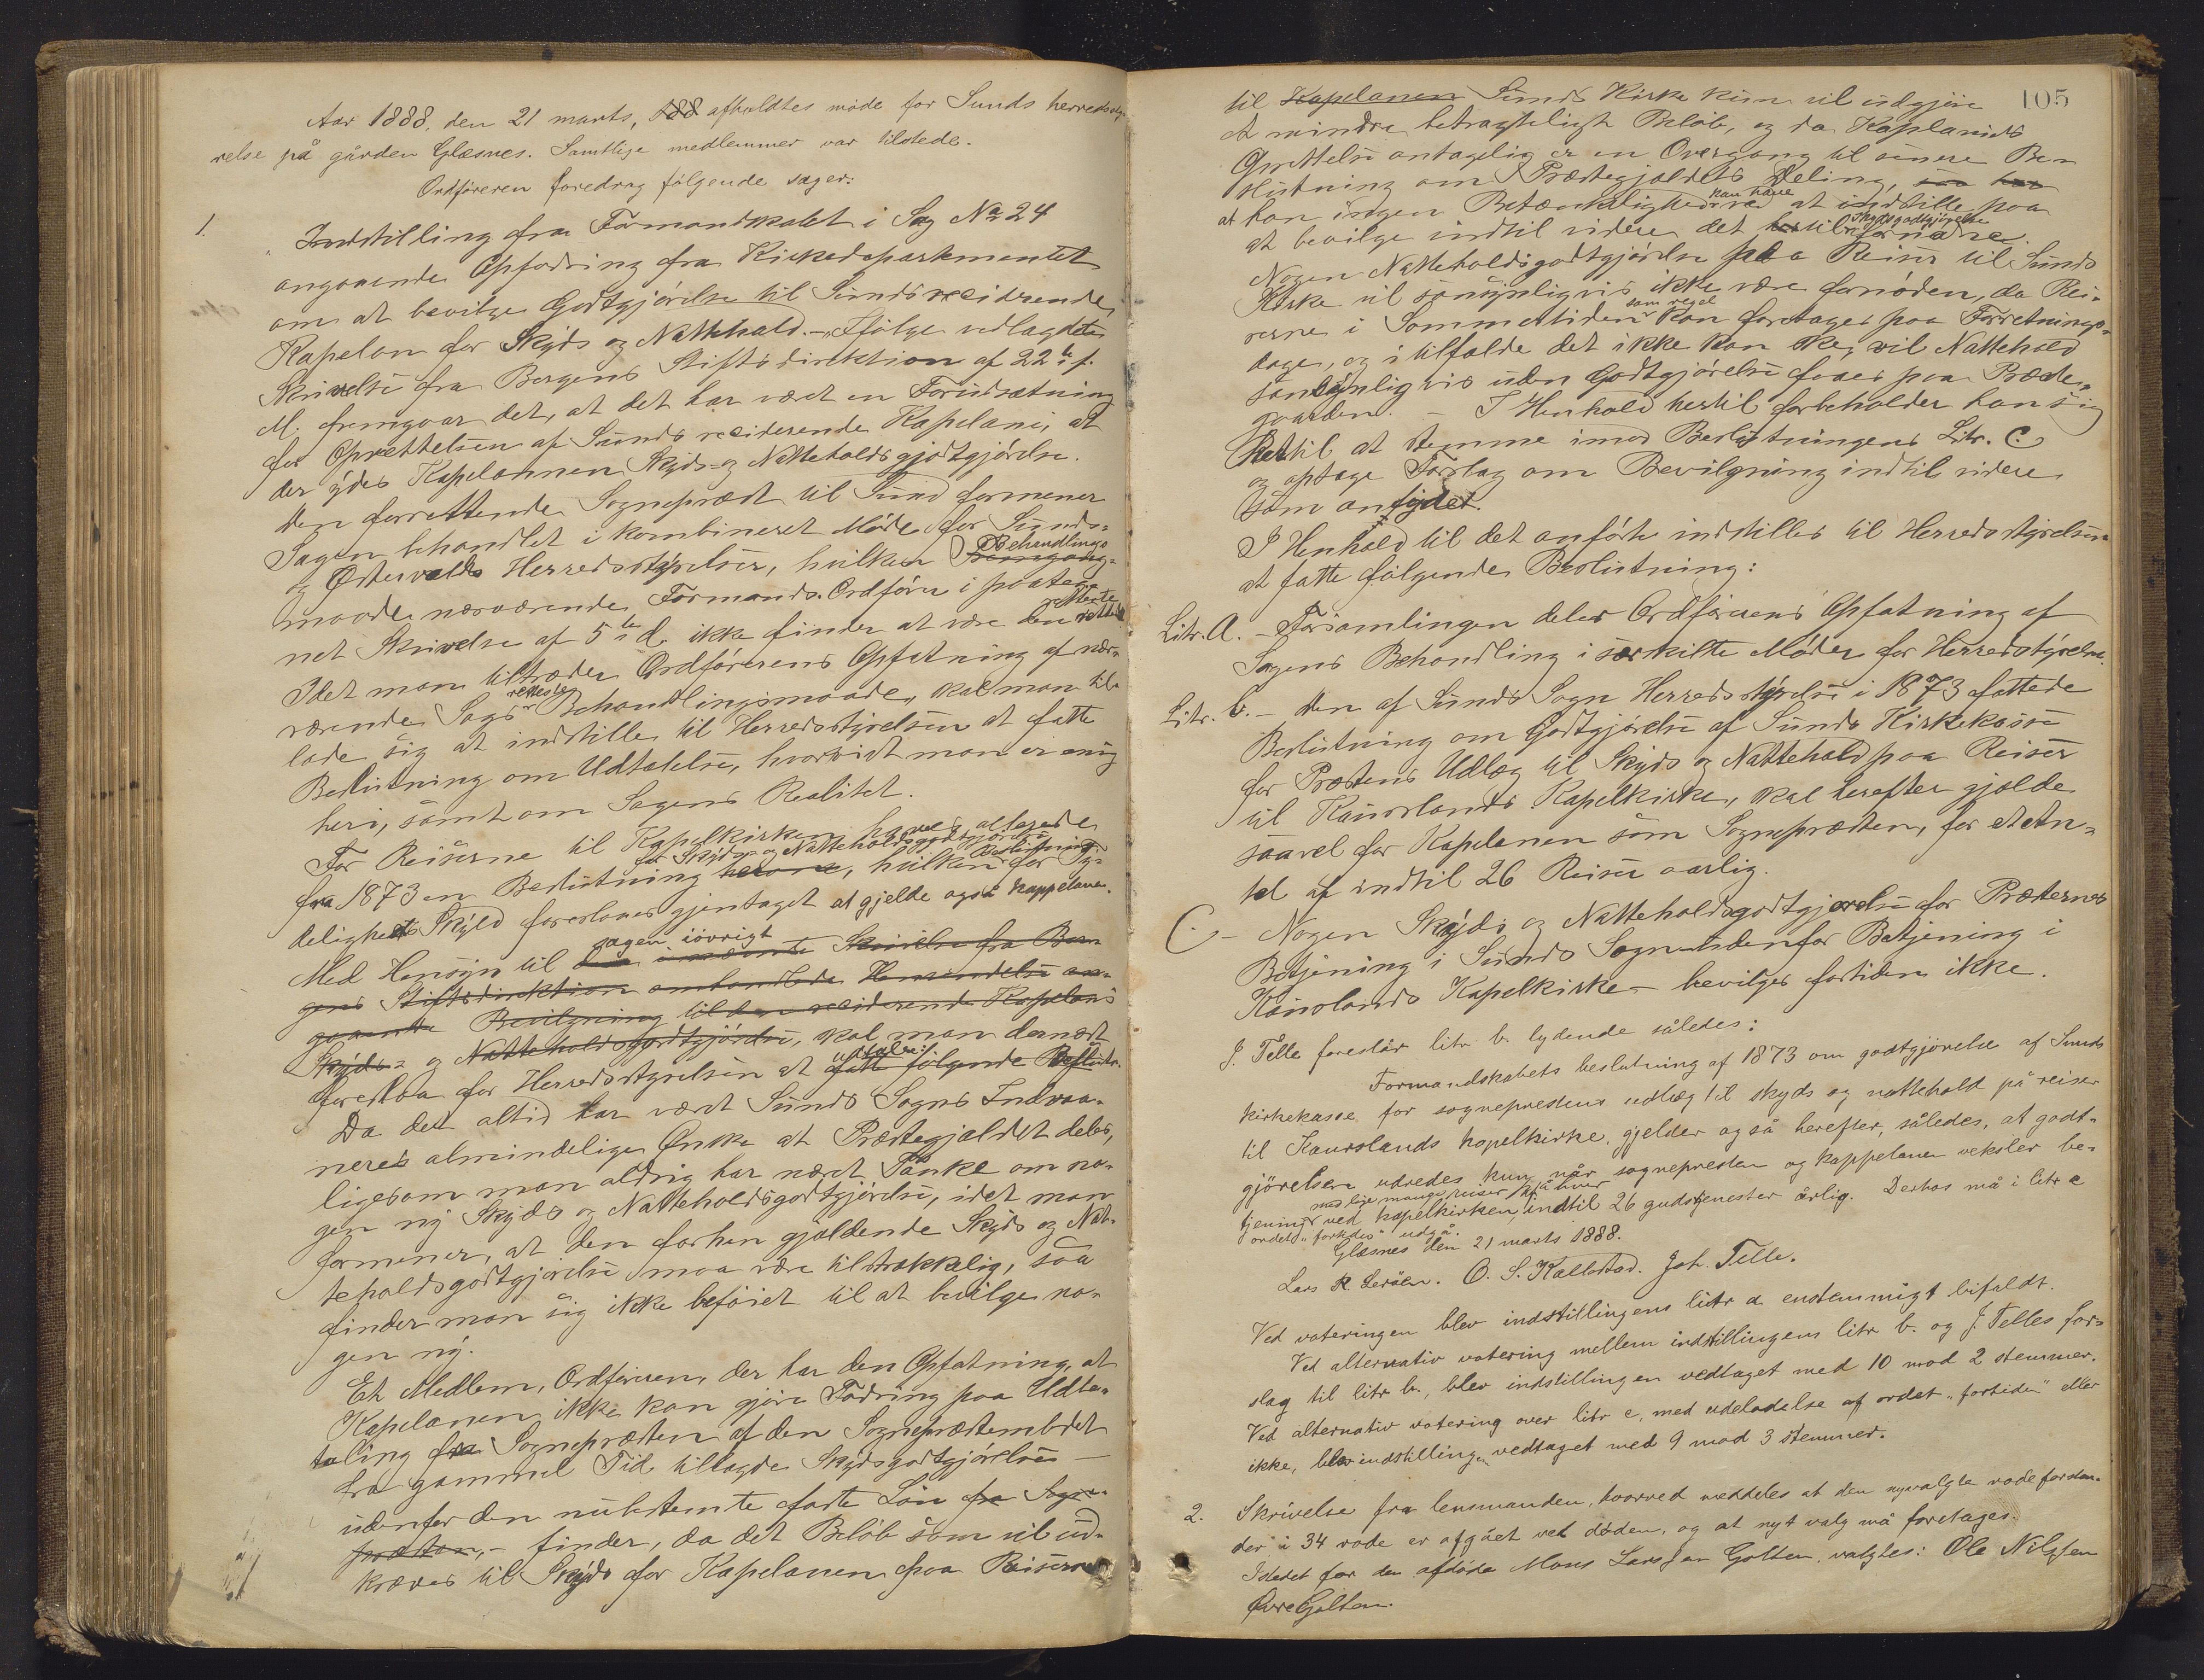 Aar 1888, den 21 marts, 188 afholdtes møde for Sunds herredssty-
relse på gården Glæsnes. Samtlige medlemmer var tilstede.
Ordføreren foredrag følgende sager:
1.
Indstilling fra Formandskabet i Sag No 24
angaaende Opfodring fra Kirkedepartementet
om at bevilge Godtgjörelse til Sunds residerende
Kapelan for Skyds og Nattehold. – Ifølge vedlagdte
Skrivelse fra Bergens Stiftsdirektion af 22de f.
M. fremgaar det, at det har været en Forudsætning
for Oprettelsen af Sunds residerende Kapelani, at
der ydes Kapelannen Skyds- og Natteholdsgjodtgjørelse.
Den forrettende Sogneprest til Sund formener
Sagen behandlet i kombineret Møde for Sunds-
og Østervolds Herredsstyrelser, hvilken Behandlings
maade nærværende Formands. Ordfører i paateg-
net Skrivelse af 5te d. ikke finder at være den retteste
Idet man tiltræder Ordførerens Opfatning af nær-
værende Sags retteste Behandlingsmaade, skal man til-
lade sig at indstille til Herredsstyrelsen at fatte
Beslutning om Udtalelse, hvorvidt man er enig
heri, samt om Sagens Realitet.
For Reiserne til Kapelkirken haves allerede
for Skyds- og Natteholdsgodtgjørelse Beslutning
fra 1873 en Beslutning herom, hvilken for Ty-
deligheds Skyld foreslaaes gjentaget at gjelde også kappelanen.
Med Hensyn til sagen iøvrigt den i nævnte Skrivelse fra Ber-
gens Stiftsdirektion omhandlede Henvendelse an-
gaaende Bevilgning til den residerende Kapelans
Skyds- og Natteholdsgodtgjörelse, skal man dernæst
foreslaa for Herredsstyrelsen at udtale: fatte følgende Beslutn.
Da det altid har været Sunds Sogns Indvaa-
neres almindelige Ønske at Præstegjældet deles,
ligesom man aldrig har næret Tanke om no-
gen ny Skyds og Natteholdsgodtgjørelse, idet man
formener, at den forhen gjældende Skyds og Nat-
teholdsgodtgjørelse maa være tilstrækkelig, saa
finder man sig ikke beføiet til at bevilge no-
gen ny.
Et Medlem, Ordføreren, der har den Opfatning, at
Kapelanen ikke kan gjøre Fodring paa Udta-
taling fra Sognepræsten af den Sognepræstembedet
fra gammel Tid tillagde Skydsgodtgjörelse –
udenfor den nubestemte faste Løn fra Sogne-
præsten, – finder, da det Beløb som vil ud-
kræves til Skyds for Kapelanen paa Reiserne
105
til Kapelanen Sunds Kirke kun vil udgjøre
et mindre betragteligt Beløb, og da Kaplaniets
Oprettelse antagelig er en Overgang til senere Be-
slutning om Præstegjældets Deling, saa har
at han ingen Betænkelighed kan have ved at indstille paa
at bevilge indtil videre det hertil Skydsgodtgjörelse fornødne.
Nogen Natteholdsgodtgjörelse paa Reiser til Sunds
Kirke vil sandsynligvis ikke være fornøden, da Rei-
serne i Sommertiden som regel kan foretages paa Forretnings-
dagen, og i tilfælde det ikke kan ske, vil Nattehold
sandsynligvis uden Godtgjörelse faaes paa Præste-
gaarden. – I Henhold hertil forbeholder han sig
Ret til at stemme imod Beslutningens Litr. C.
og optage Forslag om Bevilgning indtil videre
som antydet.
I Henhold til det anførte indstilles til Herredsstyrelsen
at fatte følgende Beslutning:
Litr. A. – Forsamlingen deler Ordførerens Opfatning af
Sagens Behandling i særskilte Møder for Herredsstyrelse.
Litr. b. – Den af Sunds Sogn Herredsstyrelse i 1873 fattede
Beslutning om Godtgjörelse af Sunds Kirkekasse
for Præstens Udlæg til Skyds og Nattehold paa Reiser
til Kausslands Kapelkirke, skal herefter gjælde
saavel for Kapelanen som Sognepræsten, for et An-
tal af indtil 26 Reiser aarlig.
C. – Nogen Skyds og Natteholdsgodtgjørelse for Præsternes
Betjening i Sunds Sogn – udenfor Betjening i
Kauslands Kapelkirke – bevilges fortiden ikke.
J. Telle foreslår litr. b. lydende således:
Formandskabets beslutning af 1873 om godtgjörelse af Sunds
kirkekasse for sogneprestens udlæg til skyds og nattehold på reiser
til Kausslands kapelkirke, gjelder også herefter, således, at godt-
gjörelsen udredes kun, når sognepresten og kappelanen veksler be-
med lige mange reiser på hver
tjening ved kapelkirken, indtil 26 gudstjenester årlig. Derhos må i litr c
ordet „fortiden" udgå.
Glæsnes den 21 marts 1888.
Lars R. Leröen. O. S. Kallestad. Joh. Telle.
Ved voteringen blev indstillingens litr a enstemmigt bifaldt.
Ved alternativ votering mellem indstillingens litr b. og J. Telles for-
slag til litr b., blev indstillingen vedtaget med 10 mod 2 stemmer.
Ved alternativ votering over litr c, med udeladelse af ordet „fortiden" eller
ikke, blev indstillingen vedtaget med 9 mod 3 stemmer.
2. Skrivelse fra lensmanden, hvorved meddeles at den nyvalgte rodeforstan-
der i 34 rode er afgået ved döden, og at nyt valg må foretages.
Istedet for den afdöde Mons Larsen Golten valgtes: Ole Nilssen
Øvre Golten.